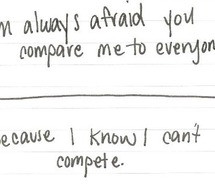 always afraid you
compare me to everyon
ecause I know I can't
compete.